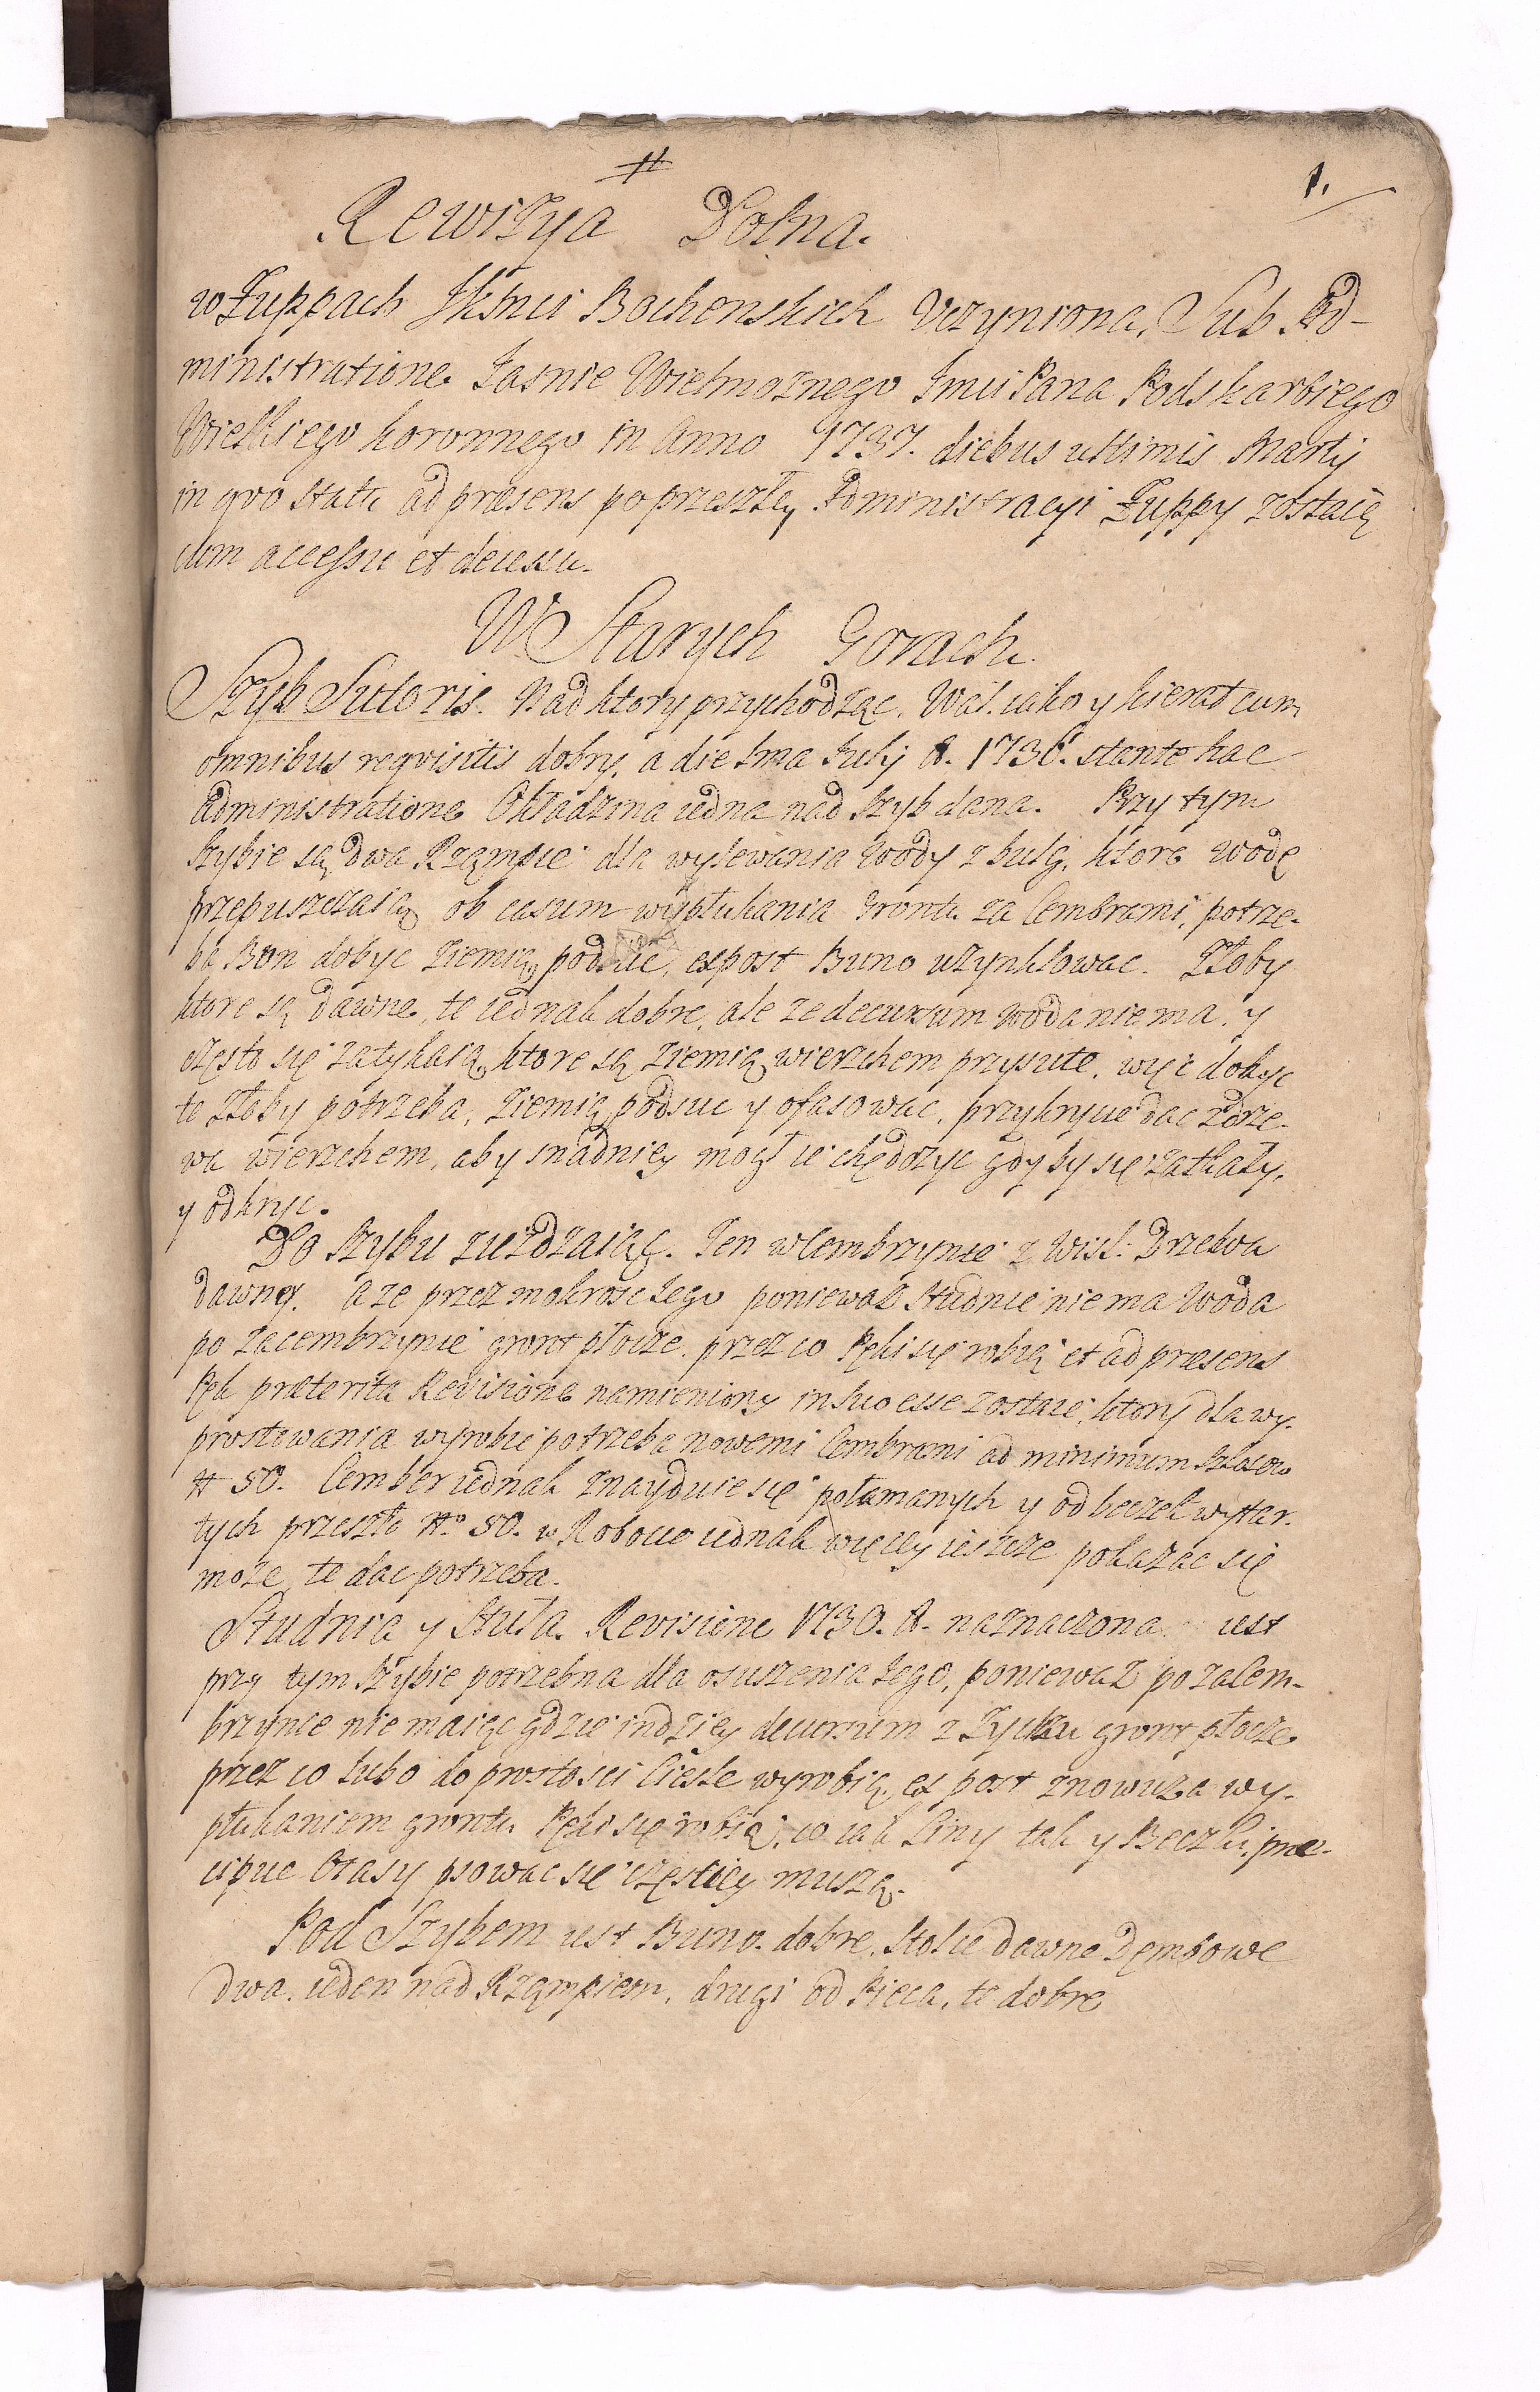 #
1.
Rewizya Dolna.
w Żuppach JKMci Bochenskich Uczyniona, Sub Ad-
ministratione Jasnie Wielmoznego Jmci Pana Podskarbiego
Wielkiego Koronnego in Anno 1737. diebus ultimis Martij
in qvo statu ad præsens po przeszłey Administracyi Żuppy zostaią
cum accessu et decessu.
W Starych Gorach.
Szyb Sutoris. Nad ktory przychodząc, Wał. iako y kierat cum
omnibus reqvisitis dobry, a die 1ma Julij A. 1736. stante hac
Administratione Okładzina iedna nad szyb dana. Przy tym
szybie są dwa Rząmpie dla wylewania wody z bulg, ktore wodę
przepuszczaią ob casum wypłukania grontu za Cembrami, potrze-
ba Bun dobyc ziemią podsuc, ex post Buno uszynklowac. Złoby
ktore są dawne, te iednak dobre, ale ze decursum woda nie ma, y
często się zatykaią, ktore są ziemią wierzchem przysute, więc dobyc
te złoby potrzeba, ziemią podsuc y ofasowac, przykrycie dac z drze-
wa wierzchem, aby snadniey mogł ie chędozyc gdyby się zatkały,
y odkryc.
Do szybu zieżdzaiąc. Ten w Cembrzynie z Wisl. Drzewa
dawney. A ze przez mokrosc iego poniewaz studnie nie ma woda
po zacembrzynie gront płocze, przez co Pęki się robią et ad præsens
Pęk præterita Revisione namieniony in suo esse zostaie, ktory dla wy-
prostowania wyrobic potrzeba nowemi Cembrami ad minimum szlosow
N 50. Cember iednak znayduie się połamanych y od beczek wytar-
tych przeszło No. 50. w Robocie iednak więcey ieszcze pokazac się
moze, te dac potrzeba.
Studnia y Stuła. Revisione 1730. A. naznaczona iest
przy tym szybie potrzebna dla osuszenia iego, poniewaz po zacem-
brzynie nie maiąc gdzie indziey decursum z Zyczku gront płocze
przez co lubo do prostosci Ciesle wyrobią, ex post znowu za wy-
płukaniem grontu Pęki się robią, co iak Liny tak y Beczki, præ-
cipue Otasy psowac się częsciey muszą.
Pod Szybem iest Buno dobre, Stolce dawne Dembowe
dwa, ieden nad Rząmpiem, drugi od Pieca, te dobre